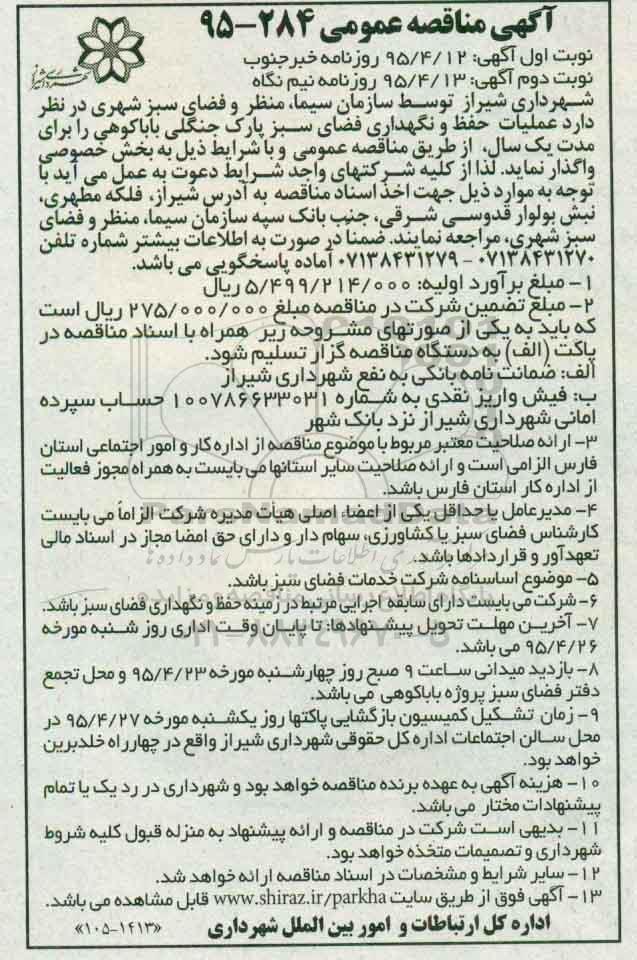 آگهی مناقصه عمومی ۲۸۴-۹۵
نوبت اول آگهی: ۹۵/۴/۱۲ روزنامه خبرجنوب
نوبت دوم آگهی: ۹۵/۴/۱۳ روزنامه نیم نگاه
شهرداری شیراز توسط سازمان سیما، منظر و فضای سبز شهری در نظر
دارد عملیات حفظ و نگهداری فضای سبز پارک جنگلی باباکوهی را برای
مدت یک سال، از طریق مناقصه عمومی و با شرایط ذیل به بخش خصوصی
واگذار نماید. لذا از کلیه شرکتهای واجد شرایط دعوت به عمل می آید با
توجه به موارد ذیل جهت اخذ اسناد مناقصه به آدرس شیراز، فلکه مطهری،
نبش بولوار قدوسی شرقی، جنب بانک سپه سازمان سیما، منظر و فضای
سبز شهری، مراجعه نمایند. ضمناً در صورت به اطلاعات بیشتر شماره تلفن
۰۷۱۳۸۴۳۱۲۷۰ - ۰۷۱۳۸۴۳۱۲۷۹ آماده پاسخگویی می باشد.
۱- مبلغ برآورد اولیه: ۵/۴۹۹/۲۱۴/۰۰۰ ریال
۲- مبلغ تضمین شرکت در مناقصه مبلغ ۲۷۵/۰۰۰/۰۰۰ ریال است
که باید به یکی از صورتهای مشروحه زیر همراه با اسناد مناقصه در
پاکت (الف) به دستگاه مناقصه گزار تسلیم شود.
الف: ضمانت نامه بانکی به نفع شهرداری شیراز
ب: فیش واریز نقدی به شماره ۱۰۰۷۸۶۶۳۳۰۳۱ حساب سپرده
امانی شهرداری شیراز نزد بانک شهر
۳- ارائه صلاحیت معتبر مربوط با موضوع مناقصه از اداره کار و امور اجتماعی استان
فارس الزامی است و ارائه صلاحیت سایر استانها می بایست به همراه مجوز فعالیت
از اداره کار استان فارس باشد.
۴- مدیرعامل یا حداقل یکی از اعضاء اصلی هیأت مدیره شرکت الزاماً می بایست
کارشناس فضای سبز یا کشاورزی، سهام دار و دارای حق امضا مجاز در اسناد مالی
تعهدآور و قراردادها باشد.
۵- موضوع اساسنامه شرکت خدمات فضای سبز باشد.
۶- شرکت می بایست دارای سابقه اجرایی مرتبط در زمینه حفظ و نگهداری فضای سبز باشد.
۷- آخرین مهلت تحویل پیشنهادها: تا پایان وقت اداری روز شنبه مورخه
۹۵/۴/۲۶ می باشد.
۸- بازدید میدانی ساعت ۹ صبح روز چهارشنبه مورخه ۹۵/۴/۲۳ و محل تجمع
دفتر فضای سبز پروژه باباکوهی می باشد.
۹- زمان تشکیل کمیسیون بازگشایی پاکتها روز یکشنبه مورخه ۹۵/۴/۲۷ در
محل سالن اجتماعات اداره کل حقوقی شهرداری شیراز واقع در چهارراه خلدبرین
خواهد بود.
۱۰- هزینه آگهی به عهده برنده مناقصه خواهد بود و شهرداری در رد یک یا تمام
پیشنهادات مختار می باشد.
۱۱- بدیهی است شرکت در مناقصه و ارائه پیشنهاد به منزله قبول کلیه شروط
شهرداری و تصمیمات متخذه خواهد بود.
۱۲- سایر شرایط و مشخصات در اسناد مناقصه ارائه خواهد شد.
۱۳- آگهی فوق از طریق سایت www.shiraz.ir/parkha قابل مشاهده می باشد.
اداره کل ارتباطات و امور بین الملل شهرداری
«۱۰۵-۱۴۱۳»